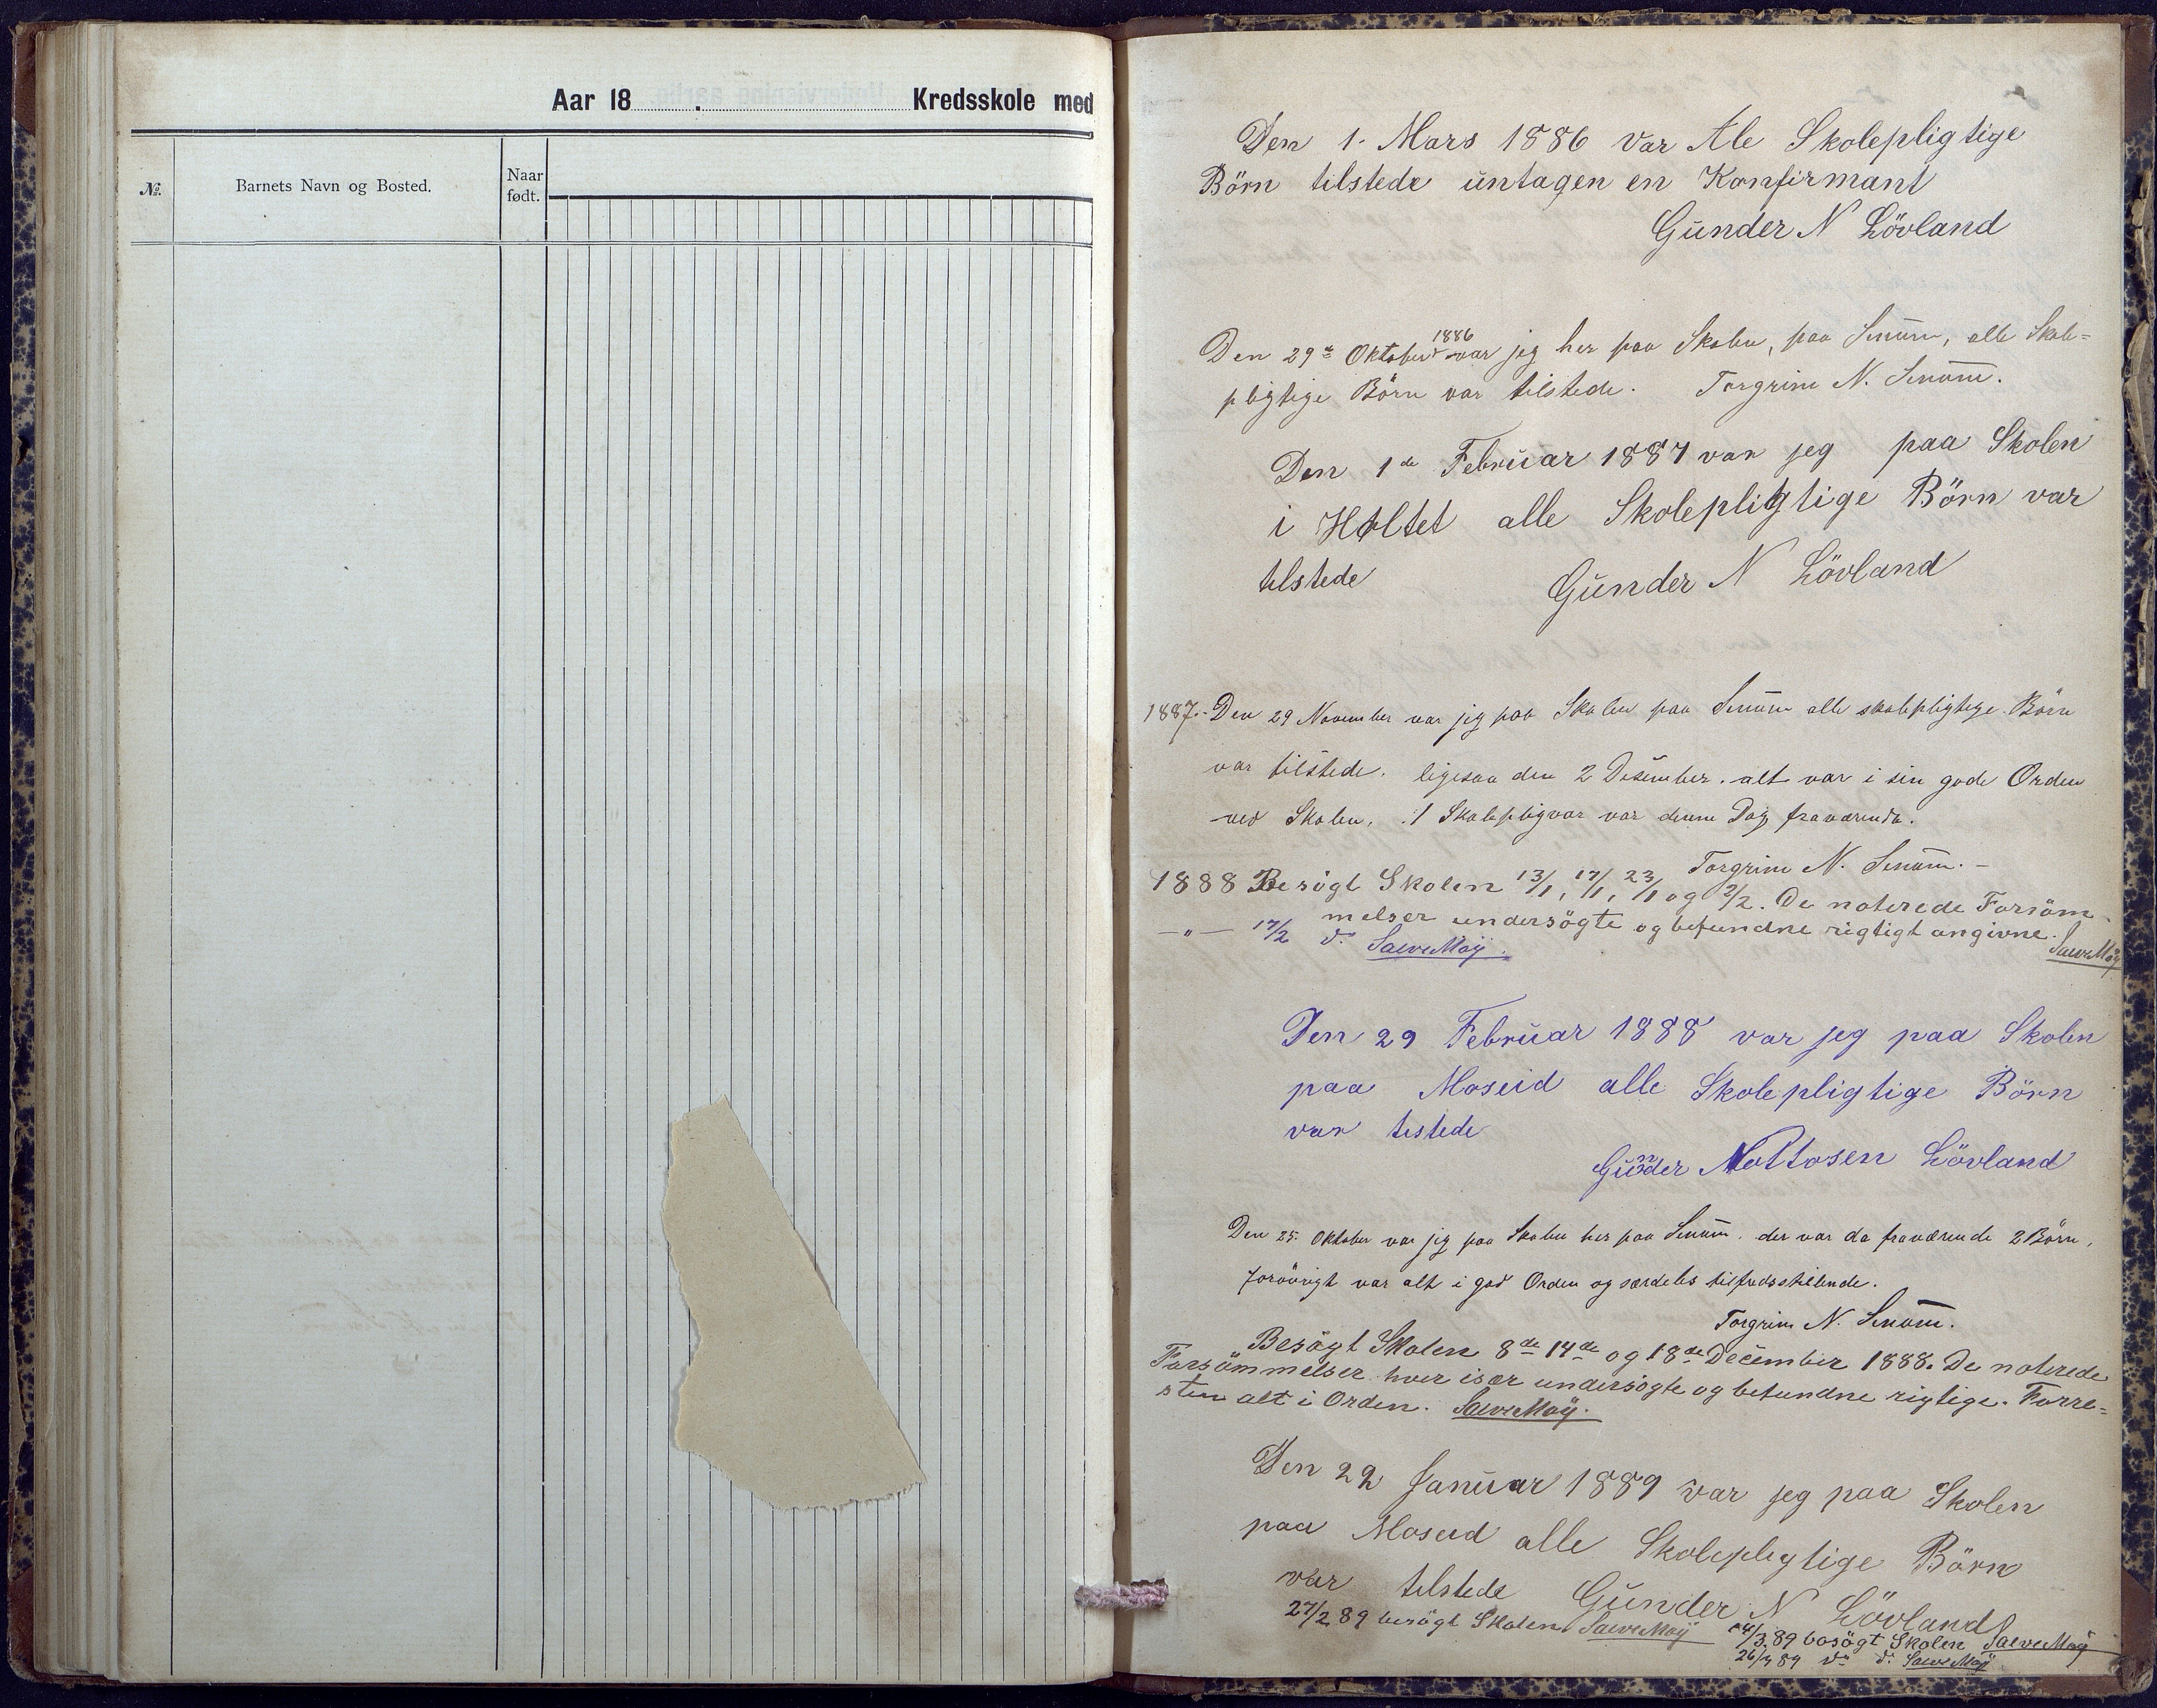 Aar 18 . Kredsskole med
№. Barnets Navn og Bosted. Naar født.
Den 1. Mars 1886 var Ale Skolepligtige
Börn tilstede untagen en Konfirmant
Gunder N Lövland
Den 29de Oktober 1886 var jeg her paa Skolen, paa Senum, alle Skole-
pligtige Börn var tilstede. Torgrim N. Senum.
Den 1de Februar 1887 var jeg paa Skolen
i Holtet alle Skolepligtige Börn var
tilstede Gunder N Lövland
1887.- Den 29 November var jeg paa Skolen paa Senum alle skolepligtige Börn
var tilstede. ligesaa den 2 Desember. alt var i sin gode Orden
ved Skolen. 1 Skolepligvar var denne Dag fraværende.
Torgrim N. Senum.-
1888 Besögt Skolen 13/1, 17/1, 23/1 og 2/2. De noterede Forsöm-
melser undersögte og befundne rigtigt angivne. Salve Moÿ
—"— 17/2 do. Salve Moÿ.
Den 29 Februar 1888 var jeg paa Skolen
paa Moseid alle Skolepligtige Börn
var testede
Gunder Nottosen Lövland
Den 25. Oktober var jeg paa Skolen her paa Senum. der var da fraværende 2 Börn,
forövrigt var alt i god Orden og særdeles tilfredsstillende.
Torgrim N. Senum.
Besögt Skolen 8de 14de og 18de December 1888. De noterede
Forsömmelser hver især undersögte og befundne rigtige. Forre-
sten alt i Orden. Salve Moÿ.
Den 22 Januar 1889 var jeg paa Skolen
paa Moseid alle Skolepligtige Börn
var tilstede Gunder N Lövland
27/2 89 besögt Skolen Salve Moÿ 14/3 89 besögt Skolen Salve Moÿ
26/3 89 do do. Salve Moÿ